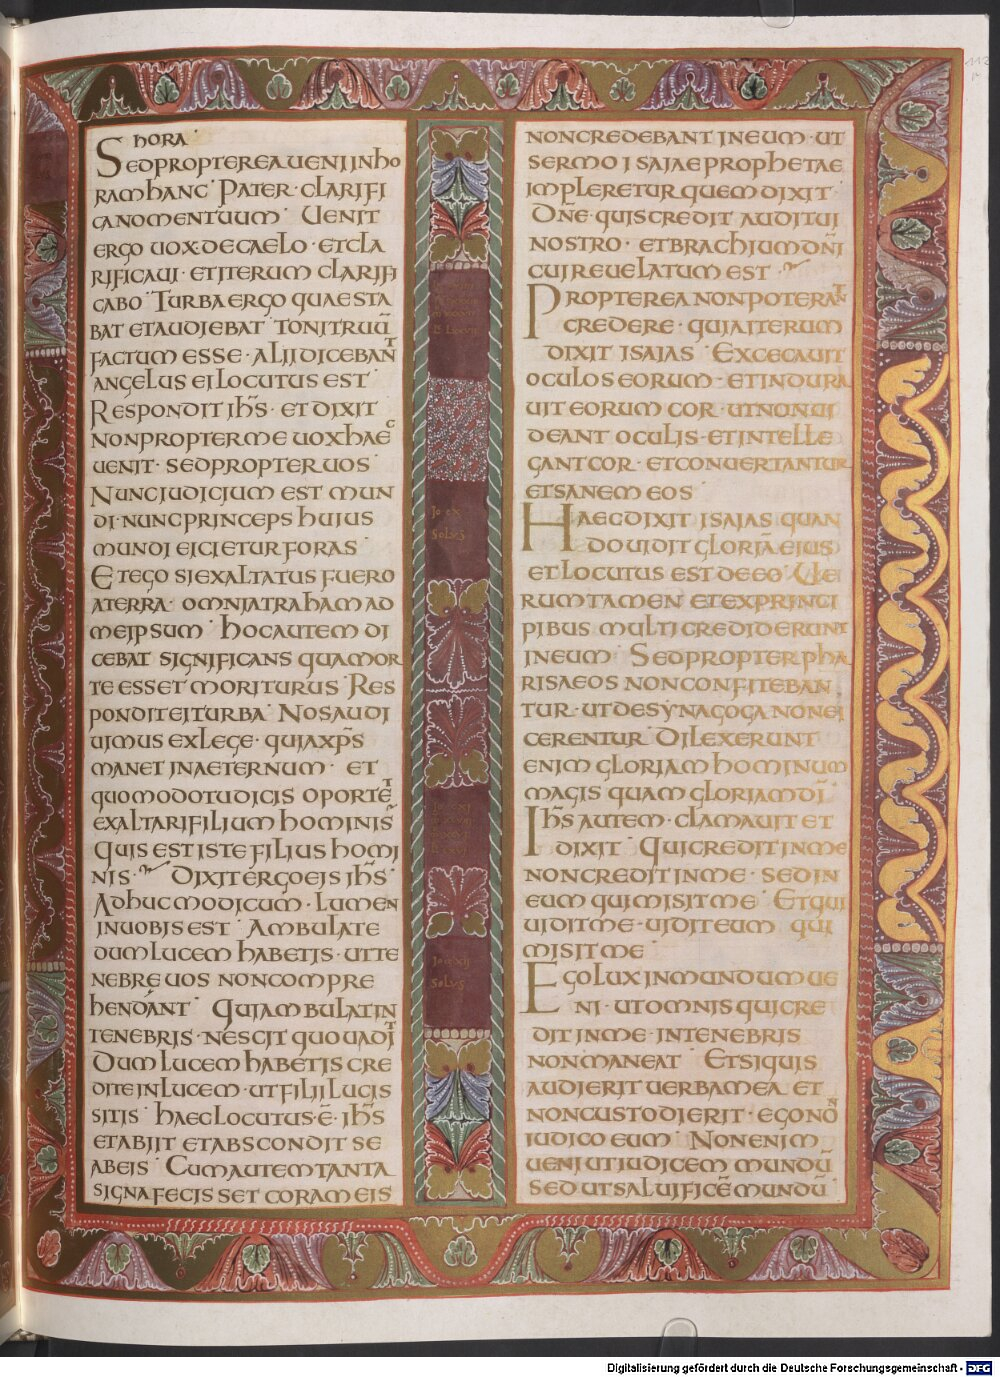 HORA
SEDPROPTEREAUENIINHO
RAMHANC PATER CLARIFI
CANOMENTUUM UENIT
ERGO UOXDECAELO ETCLA
RIFICAUI ETITERUM CLARIFI
CABO TURBAERGO QUAESTA
BAT ETAUDIEBAT TONITRUŪ
FACTUM ESSE ALIIDICEBANT
ANGELUS EILOCUTUS EST
RESPONDIT IHS̄ ET DIXIT
NONPROPTERME UOXHAEC
UENIT SEDPROPTERUOS
NUNCIUDICIUM EST MUN
DI NUNCPRINCEPS HUIUS
MUNDI EICIETURFORAS
ETEGO SIEXALTATUS FUERO
ATERRA OMNIATRAHAMAD
MEIPSUM HOCAUTEM DI
CEBAT SIGNIFICANS QUAMOR
TE ESSET MORITURUS RES
PONDITEITURBA NOSAUDI
UIMUS EXLEGE QUIAXP̄S
MANET INAETERNUM ET
QUOMODOTUDICIS OPORTET
EXALTARIFILIUM HOMINIS
QUIS ESTISTE FILIUS HOMI
NIS DIXITERGOEIS IHS̄
ADHUCMODICUM LUMEN
INUOBISEST AMBULATE
DUMLUCEM HABETIS UTTE
NEBREUOS NONCOMPRE
HENDANT QUIAMBULATIN
TENEBRIS NESCIT QUOUADIT
DUMLUCEMHABETIS CRE
DITEINLUCEM UTFILIILUCIS
SITIS HAECLOCUTUS Ē IHS̄
ETABIIT ETABSCONDIT SE
ABEIS CUMAUTEMTANTA
SIGNAFECISSET CORAMEIS
NONCREDEBANT INEUM UT
SERMO ISAIAEPROPHETAE
IMPLERETUR QUEMDIXIT
DN̄E QUISCREDIT AUDITUI
NOSTRO ETBRACHIUMDN̄I
CUIREUELATUM EST
PROPTEREA NONPOTERANT
CREDERE QUIAITERUM
DIXIT ISAIAS EXCECAUIT
OCULOSEORUM ETINDURA
UIT EORUM COR UTNONUI
DEANT OCULIS ETINTELLE
GANTCOR ETCONUERTANTUR
ETSANEM EOS
HAECDIXIT ISAIAS QUAN
DOUIDIT GLORIĀEIUS
ETLOCUTUS EST DEEO UE
RUMTAMEN ETEXPRINCI
PIBUS MULTICREDIDERUNT
INEUM SEDPROPTERPHA
RISAEOS NONCONFITEBAN
TUR UTDESYNAGOGA NONEI
CERENTUR DILEXERUNT
ENIM GLORIAM HOMINUM
MAGIS QUAM GLORIAMDĪ
IHS̄ AUTEM CLAMAUIT ET
DIXIT QUICREDITINME
NONCREDITINME SEDIN
EUM QUIMISITME ETQUI
UIDITME UIDITEUM QUI
MISITME
EGOLUXINMUNDUMUE
NI UTOMNISQUICRE
DITINME INTENEBRIS
NONMANEAT ETSIQUIS
AUDIERITUERBAMEA ET
NONCUSTODIERIT EGONŌN
IUDICOEUM NONENIM
UENIUTIUDICEM MUNDŪ
SEDUTSALUIFICĒMUNDŪ
Digitalisierung gefördert durch die Deutsche Forschungsgemeinschaft - DFG